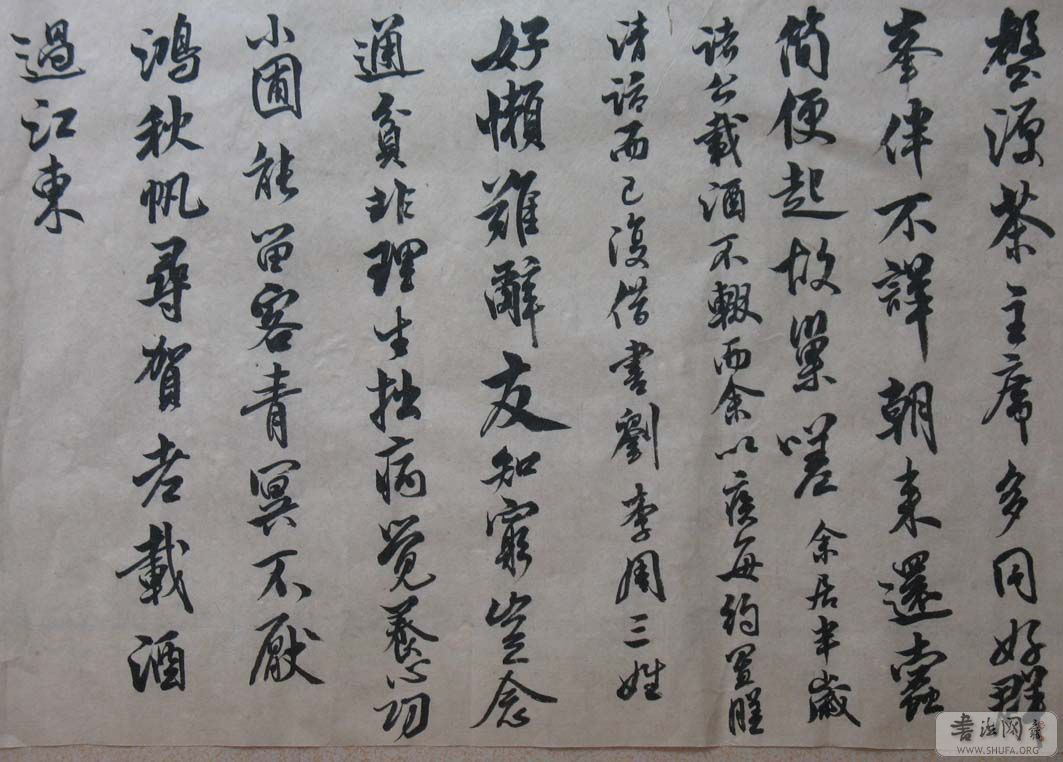 壑源茶主席多同好群
峯伴不譁朝來還蠹
簡便起故巢嗟余居半歲
諸公載酒不輟而余以疾每約置膳
清話而已復借書劉李周三姓
好懶難辭友知窮豈念
通貧非理生拙病覺養心功
小圃能留客青冥不厭
鴻秋帆尋賀老載酒
過江東
书法网
WWW.SHUFA.ORG